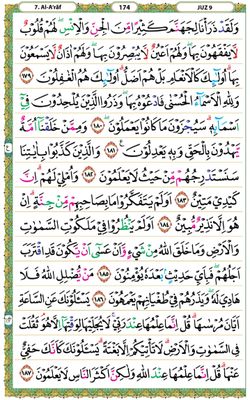 7. Al-A'râf 174 JUZ 9
وَلَقَدْ ذَرَأْنَا لِجَهَنَّمَ كَثِيرًا مِّنَ الْجِنِّ وَالْإِنسِ ۖ لَهُمْ قُلُوبٌ
لَّا يَفْقَهُونَ بِهَا وَلَهُمْ أَعْيُنٌ لَّا يُبْصِرُونَ بِهَا وَلَهُمْ آذَانٌ لَّا يَسْمَعُونَ
بِهَا ۚ أُولَٰئِكَ كَالْأَنْعَامِ بَلْ هُمْ أَضَلُّ ۚ أُولَٰئِكَ هُمُ الْغَافِلُونَ ١٧٩
وَلِلَّهِ الْأَسْمَاءُ الْحُسْنَىٰ فَادْعُوهُ بِهَا ۖ وَذَرُوا الَّذِينَ يُلْحِدُونَ فِي
أَسْمَائِهِ ۚ سَيُجْزَوْنَ مَا كَانُوا يَعْمَلُونَ ١٨٠ وَمِمَّنْ خَلَقْنَا أُمَّةٌ
يَهْدُونَ بِالْحَقِّ وَبِهِ يَعْدِلُونَ ١٨١ وَالَّذِينَ كَذَّبُوا بِآيَاتِنَا
سَنَسْتَدْرِجُهُم مِّنْ حَيْثُ لَا يَعْلَمُونَ ١٨٢ وَأُمْلِي لَهُمْ ۚ إِنَّ
كَيْدِي مَتِينٌ ١٨٣ أَوَلَمْ يَتَفَكَّرُوا ۗ مَا بِصَاحِبِهِم مِّن جِنَّةٍ ۚ إِنْ
هُوَ إِلَّا نَذِيرٌ مُّبِينٌ ١٨٤ أَوَلَمْ يَنظُرُوا فِي مَلَكُوتِ السَّمَاوَاتِ
وَالْأَرْضِ وَمَا خَلَقَ اللَّهُ مِن شَيْءٍ وَأَنْ عَسَىٰ أَن يَكُونَ قَدِ اقْتَرَبَ
أَجَلُهُمْ ۖ فَبِأَيِّ حَدِيثٍ بَعْدَهُ يُؤْمِنُونَ ١٨٥ مَن يُضْلِلِ اللَّهُ فَلَا
هَادِيَ لَهُ ۚ وَيَذَرُهُمْ فِي طُغْيَانِهِمْ يَعْمَهُونَ ١٨٦ يَسْأَلُونَكَ عَنِ السَّاعَةِ
أَيَّانَ مُرْسَاهَا ۖ قُلْ إِنَّمَا عِلْمُهَا عِندَ رَبِّي ۖ لَا يُجَلِّيهَا لِوَقْتِهَا إِلَّا هُوَ ۚ ثَقُلَتْ
فِي السَّمَاوَاتِ وَالْأَرْضِ ۚ لَا تَأْتِيكُمْ إِلَّا بَغْتَةً ۗ يَسْأَلُونَكَ كَأَنَّكَ حَفِيٌّ
عَنْهَا ۖ قُلْ إِنَّمَا عِلْمُهَا عِندَ اللَّهِ وَلَٰكِنَّ أَكْثَرَ النَّاسِ لَا يَعْلَمُونَ ١٨٧